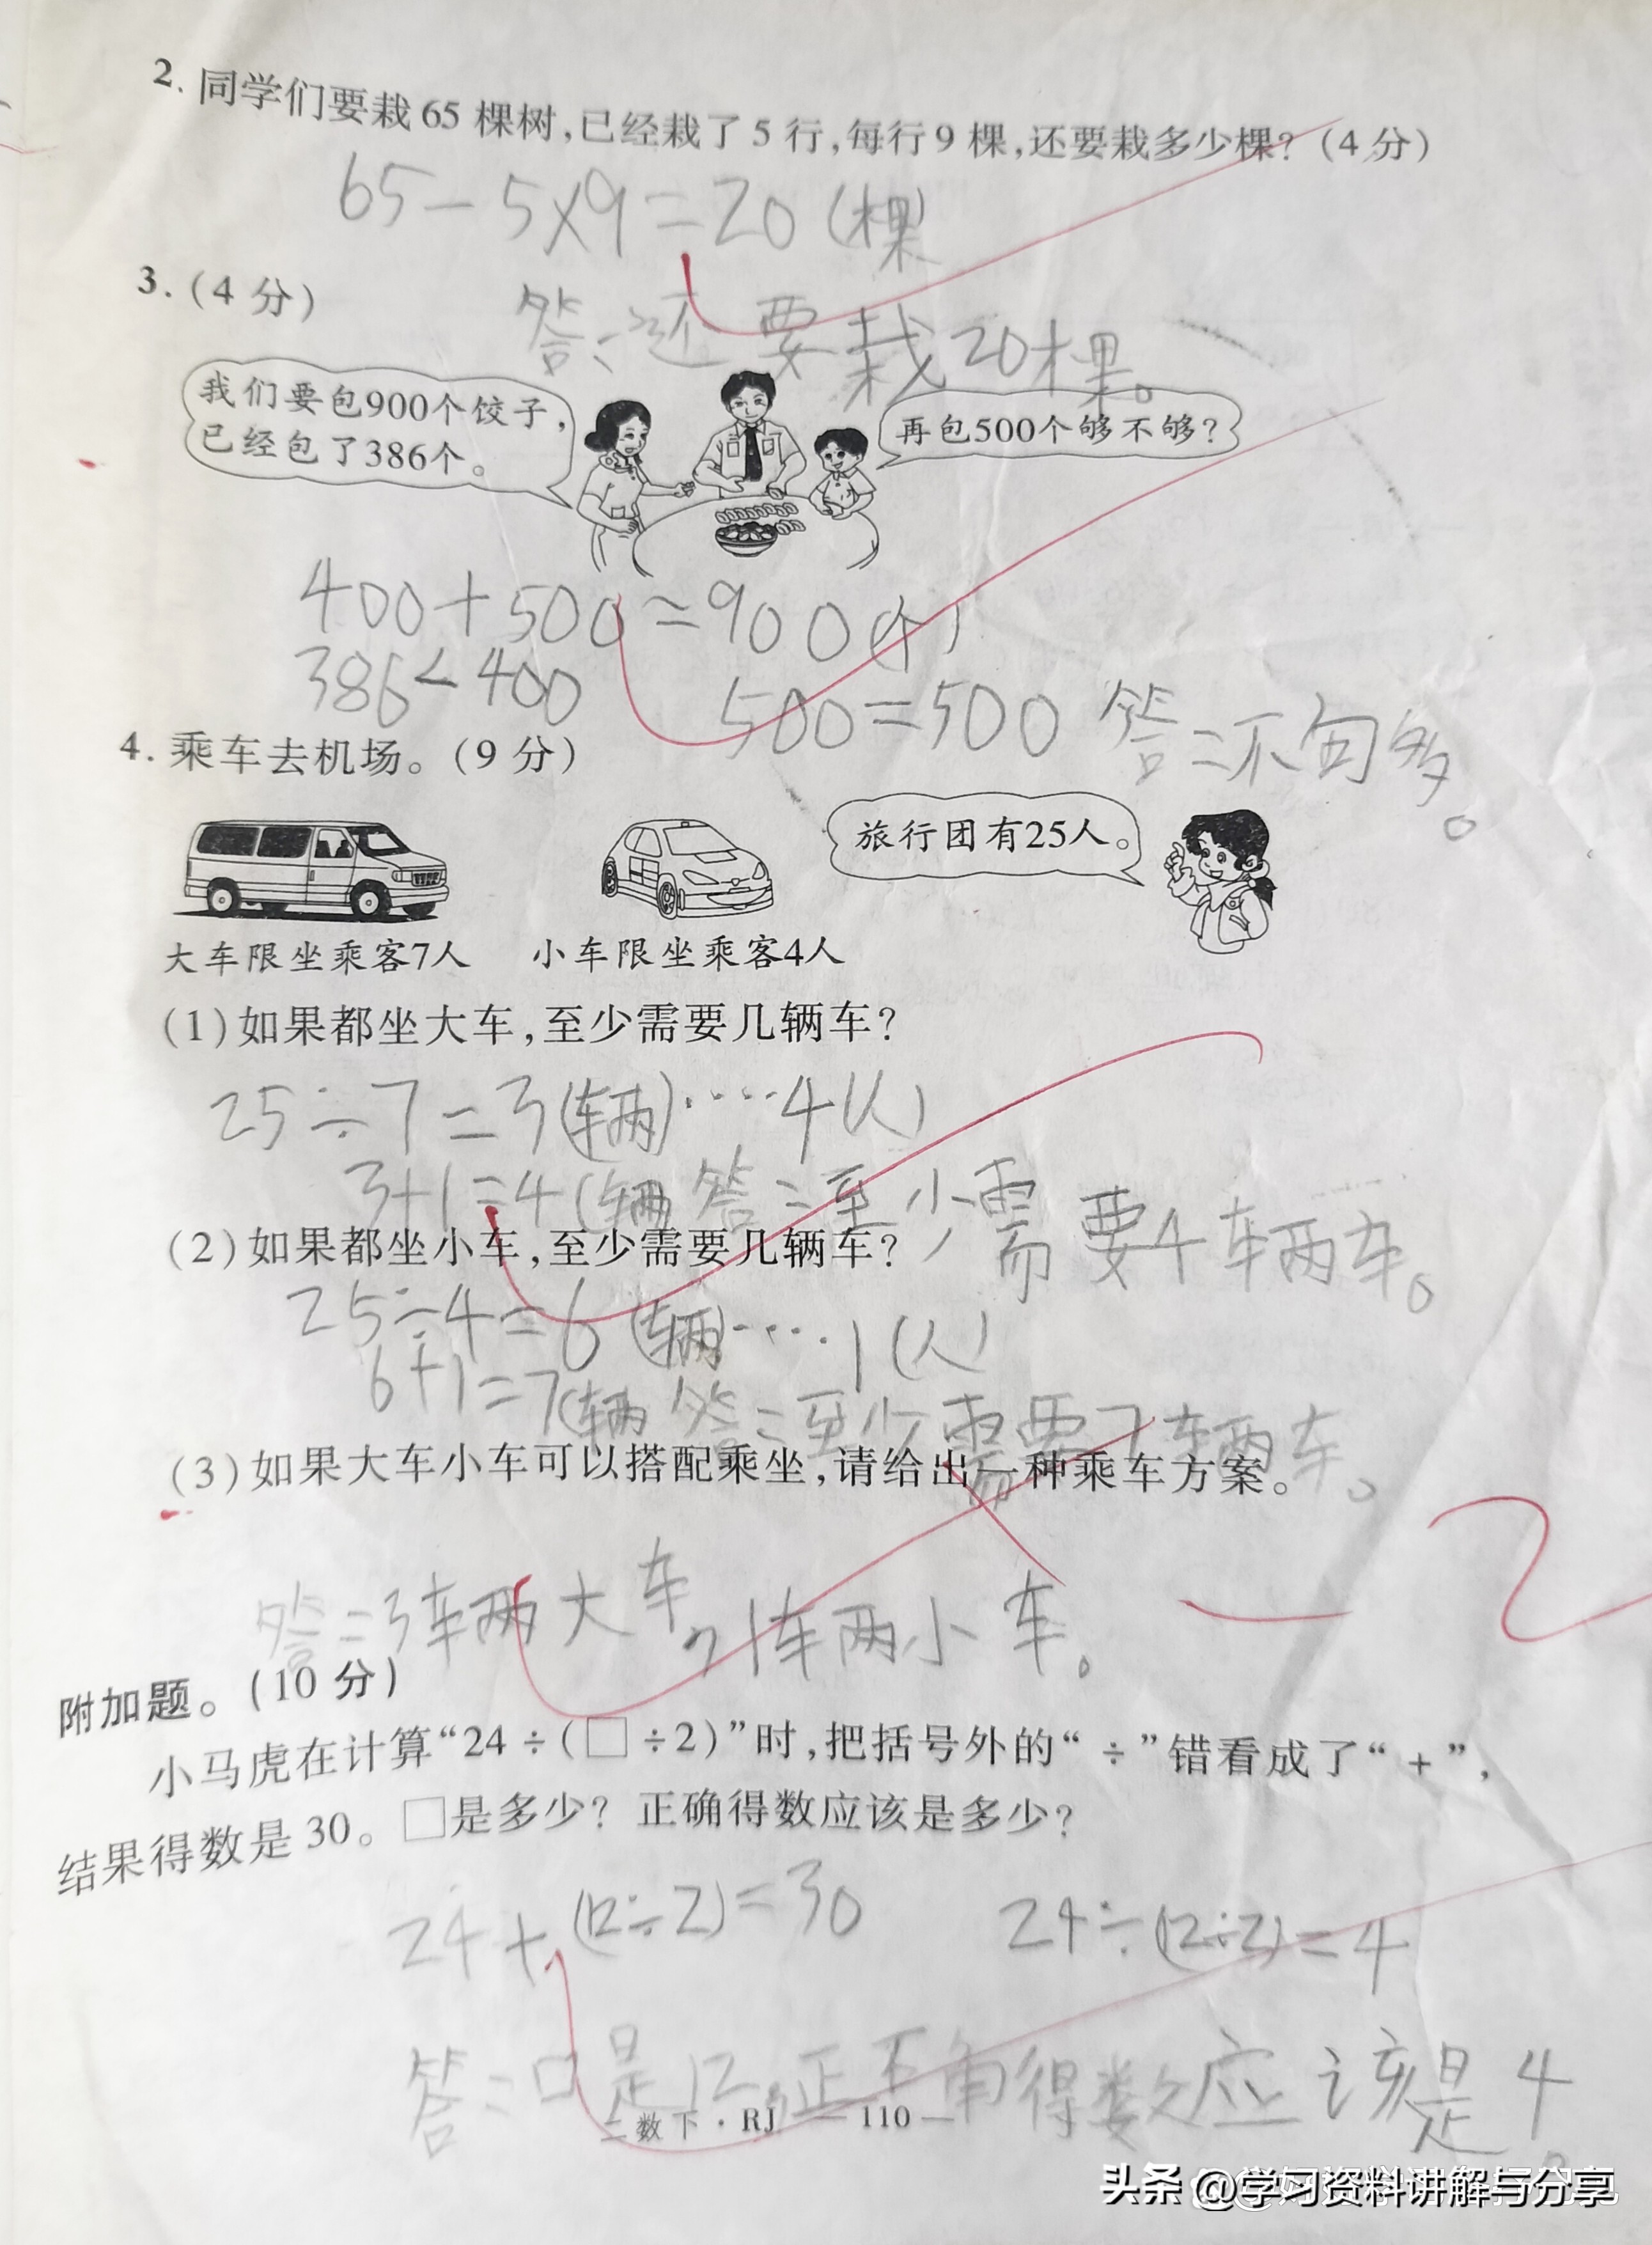 2. 同学们要栽65棵树,已经栽了5行,每行9棵,还要栽多少棵?(4分)
65-5×9=20(棵)
3. (4分)
答:还要栽20棵。
我们要包900个饺子,
已经包了386个。
再包500个够不够?
400+500=900(个)
386<400
500=500 答:不够。
4. 乘车去机场。(9分)
旅行团有25人。
大车限坐乘客7人 小车限坐乘客4人
(1)如果都坐大车,至少需要几辆车?
25÷7=3(辆)····4(人)
3+1=4(辆 答:至少需要4辆车。
(2)如果都坐小车,至少需要几辆车?
25÷4=6(辆)····1(人)
6+1=7(辆 答:至少需要7辆车。
(3)如果大车小车可以搭配乘坐,请给出一种乘车方案。
-2
答:3辆大车,1辆小车。
附加题。(10分)
小马虎在计算“24÷(□÷2)”时,把括号外的“÷”错看成了“+”,
结果得数是30。□是多少?正确得数应该是多少?
24+(12÷2)=30 24÷(12÷2)=4
答:□是12,正确得数应该是4。
二数下·RJ —110—
头条@学习资料讲解与分享